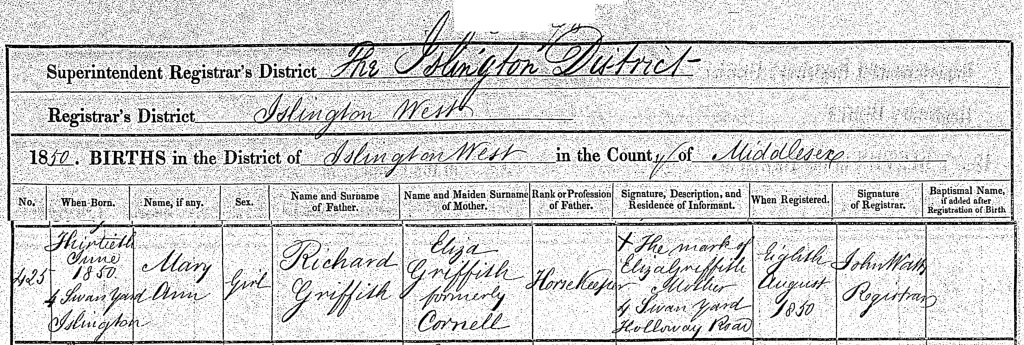 Superintendent Registrar's District The Islington District
Registrar's District Islington West
1850. BIRTHS in the District of Islington West in the County of Middlesex
No. When Born. Name, if any. Sex. Name and Surname of Father. Name and Maiden Surname of Mother. Rank or Profession of Father. Signature, Description, and Residence of Informant. When Registered. Signature of Registrar. Baptismal Name, if added after Registration of Birth
425
Thirtieth
June
1850
4 Swan Yard
Islington
Mary
Ann
Girl
Richard
Griffith
Eliza
Griffith
formerly
Cornell
Horse Keeper
+ The mark of
Eliza Griffith
Mother
4 Swan Yard
Holloway Road
Eighth
August
1850
John Watts
Registrar